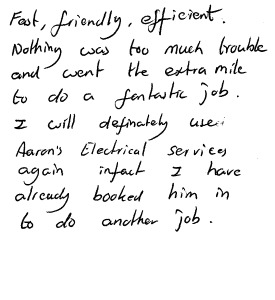 Fast, friendly, efficient.
Nothing was too much trouble
and went the extra mile
to do a fantastic job.
I will definately use
Aaron's Electrical services
again infact I have
already booked him in
to do another job.